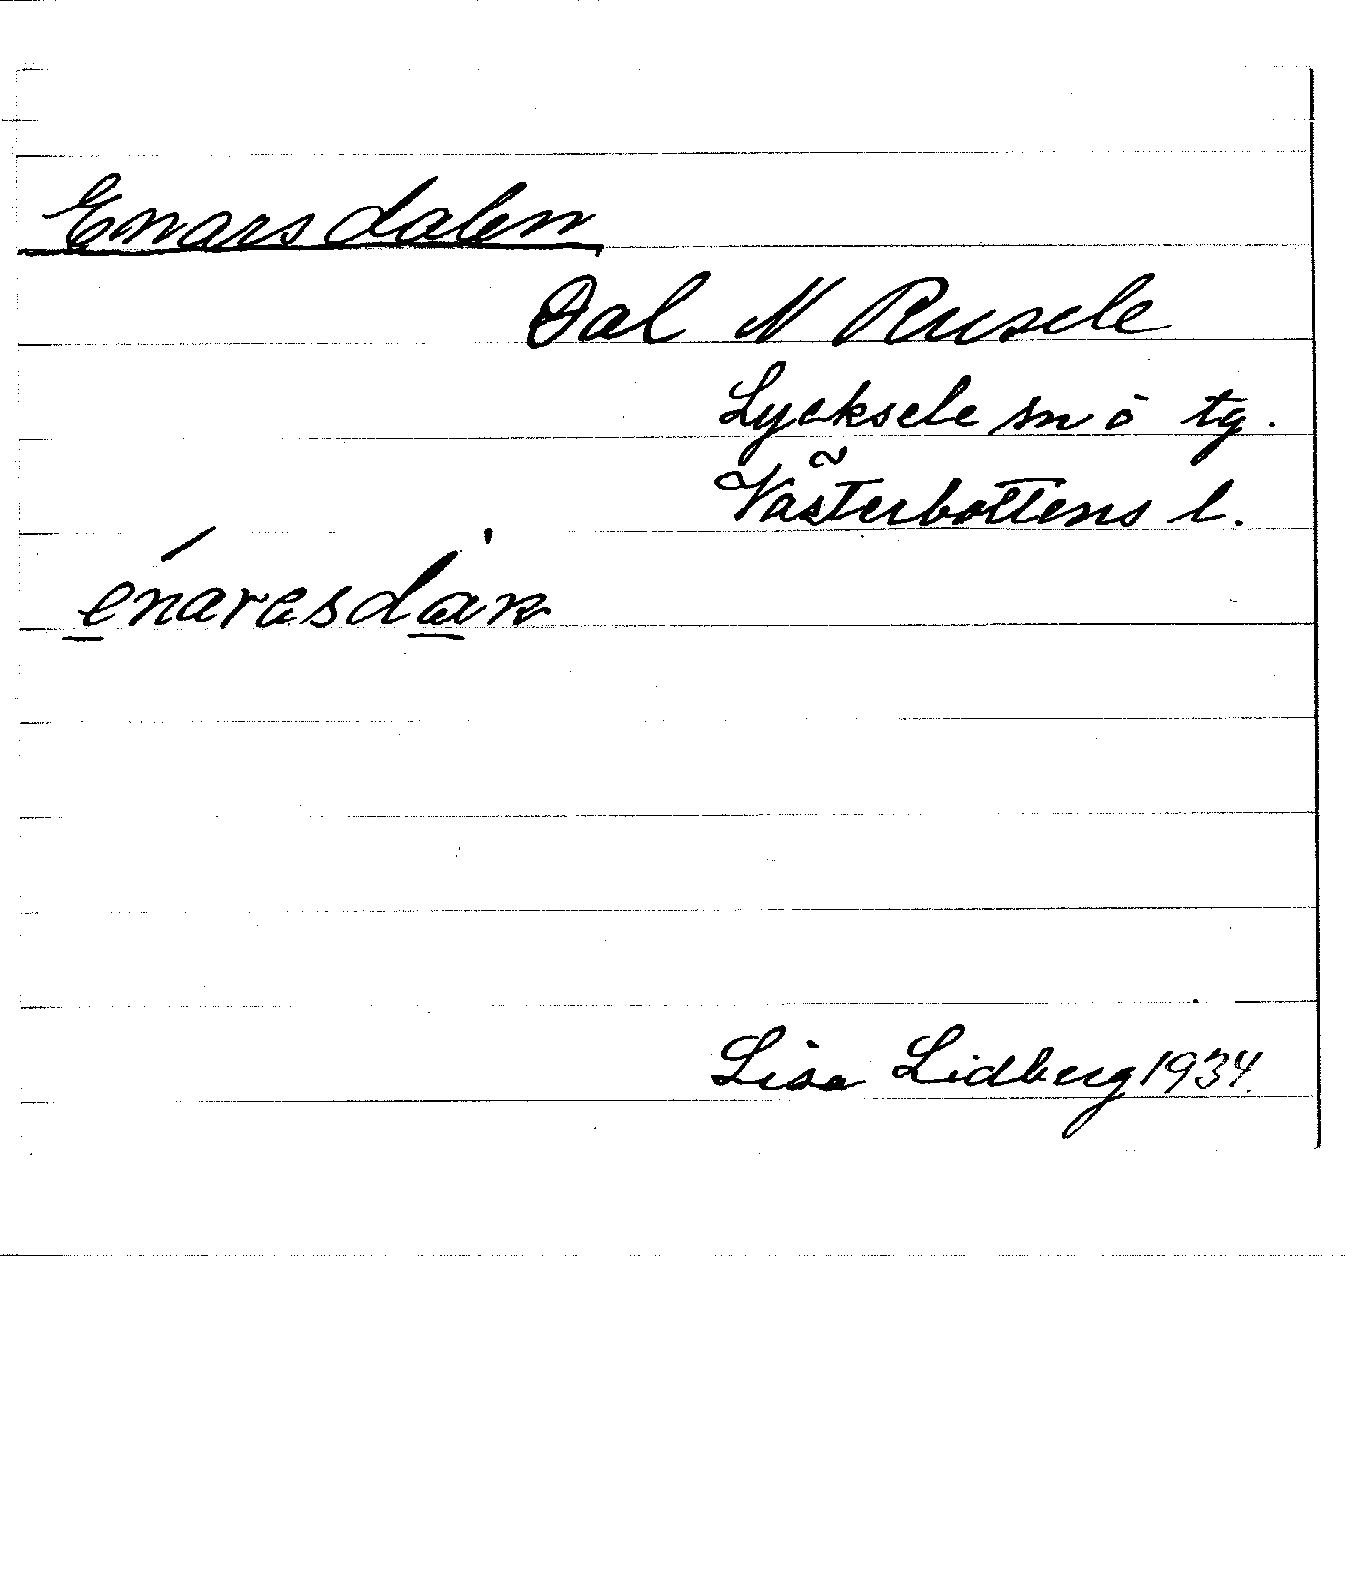 Enarsdalen
Dal N Rusele
Lycksele sn o tg.
Västerbottens l.
Lisa Lidberg 1934.